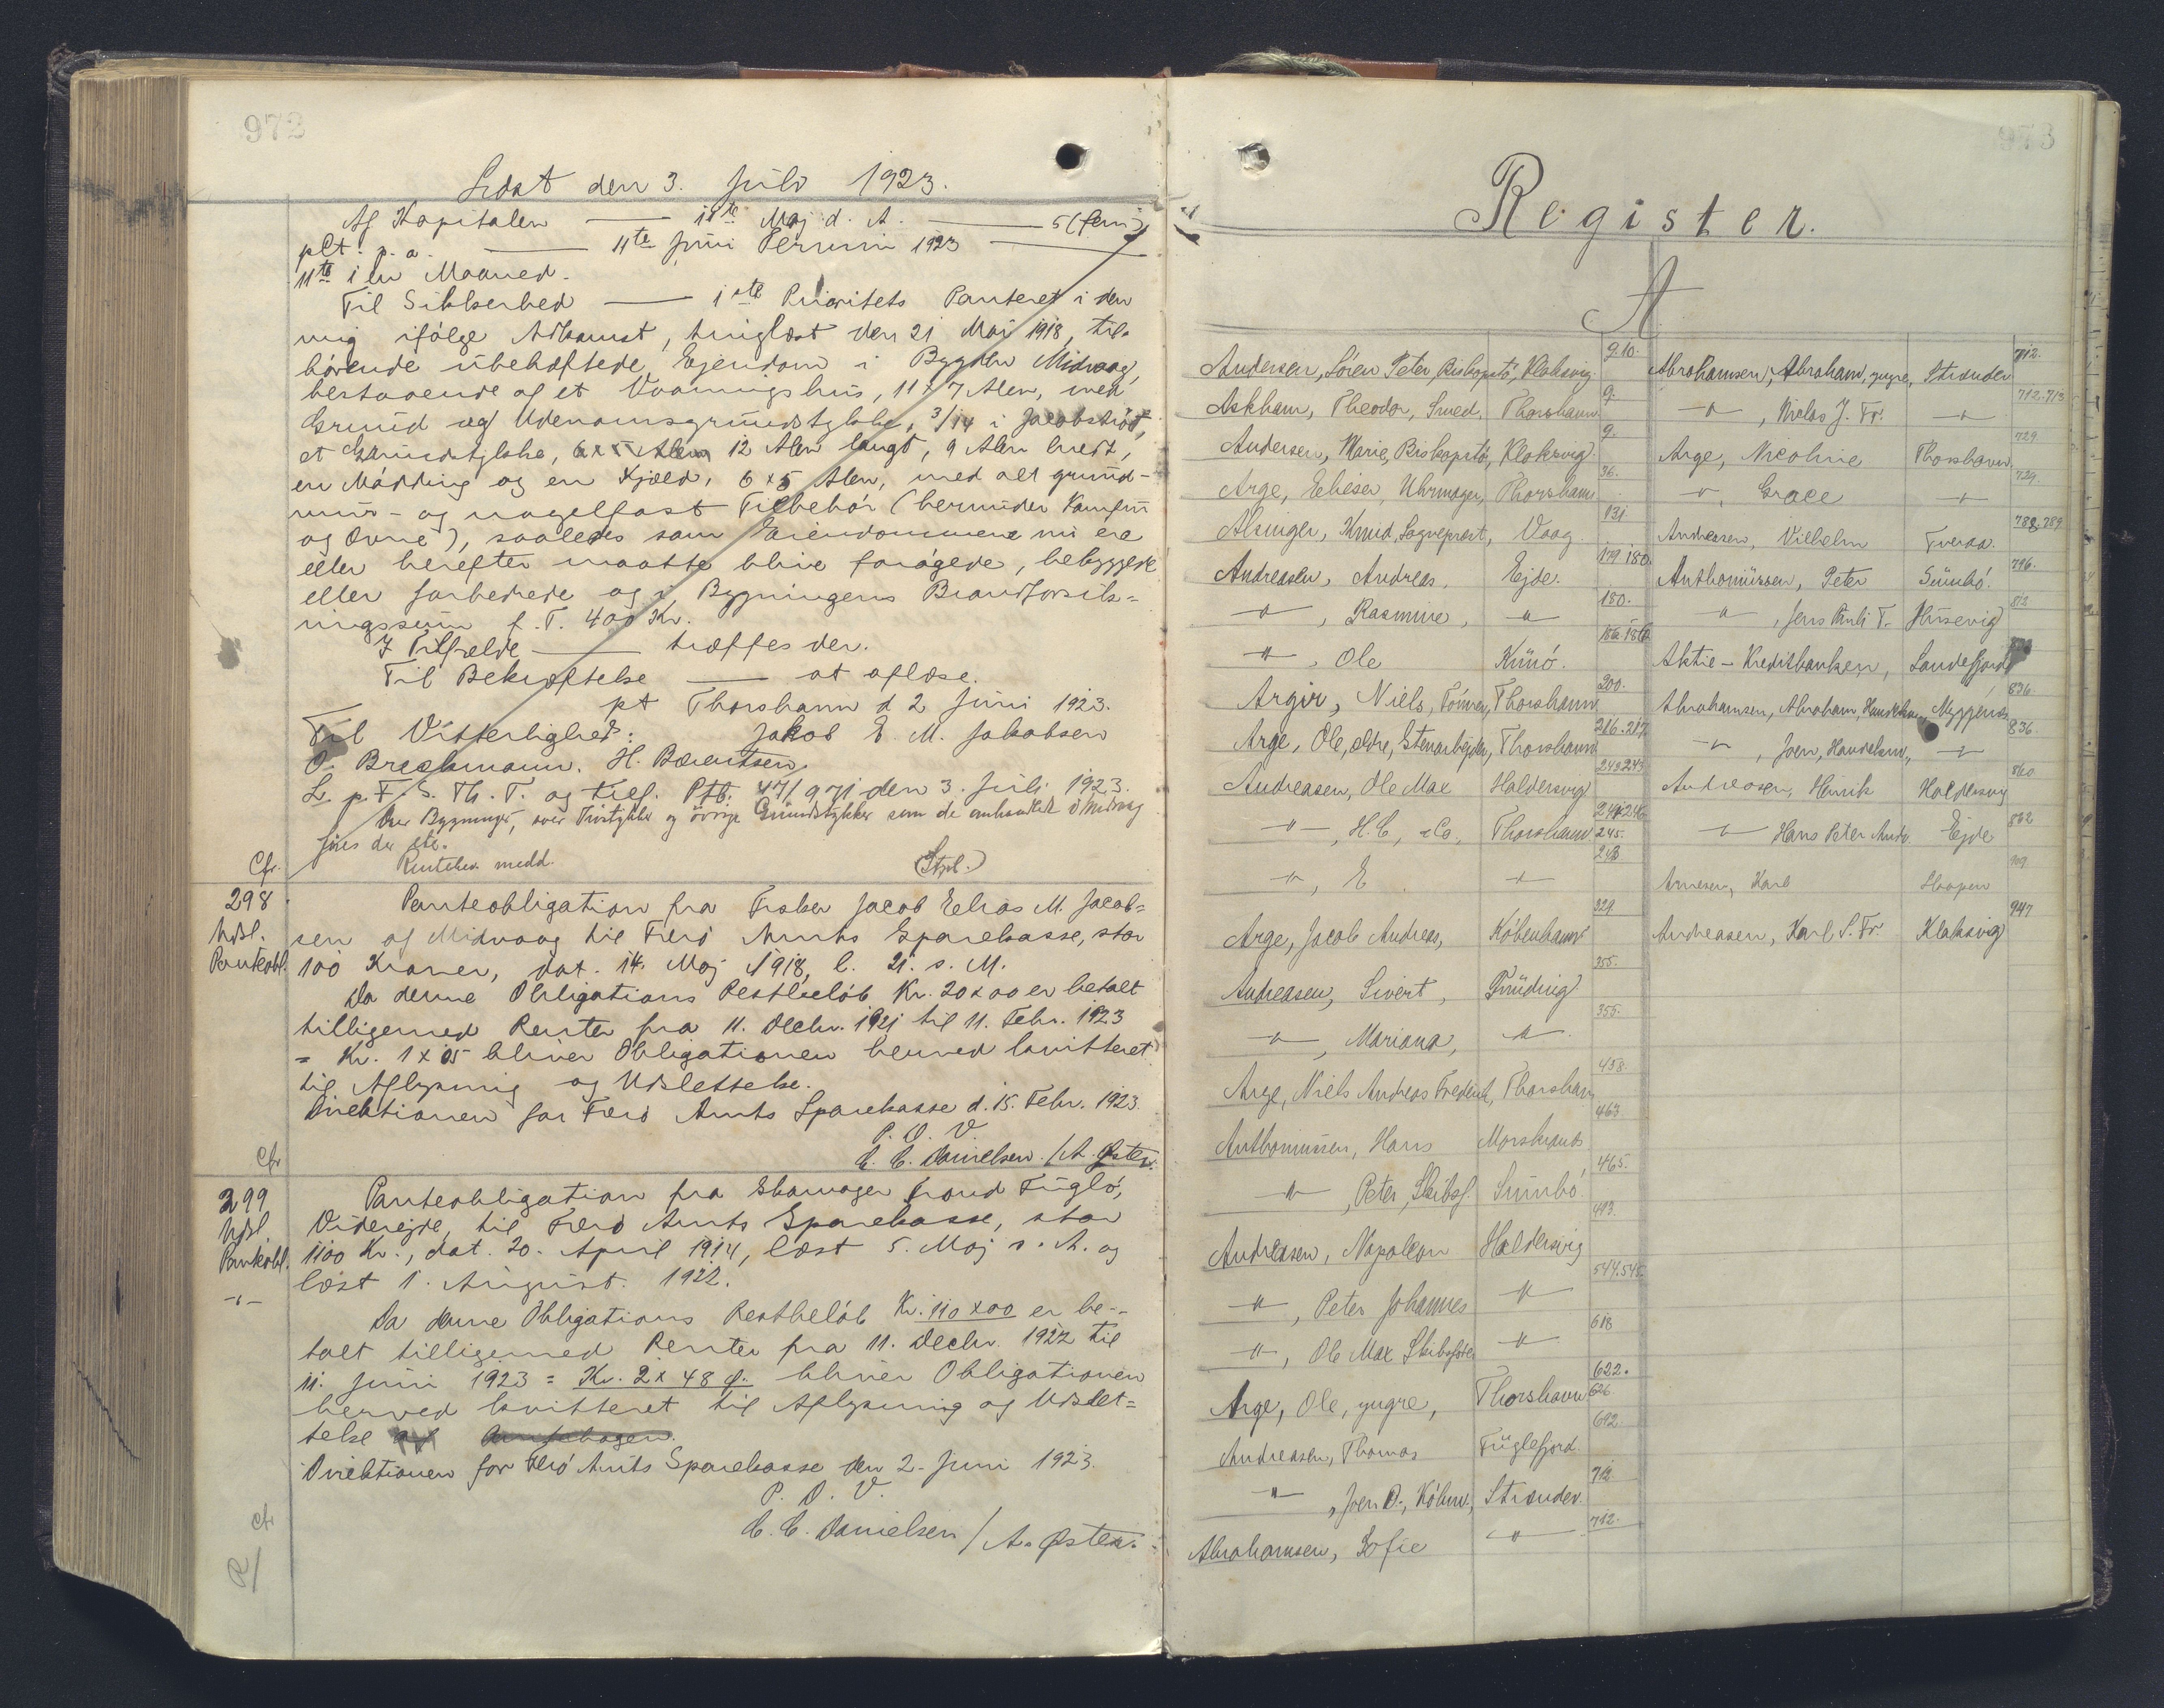 972
Læst den 3. Juli 1923.
Af Kapitalen — 11te Maj d. A. — 5 (fem)
pCt. p. a. — 11te Juni Termin 1923 —
11te i en Maaned.
Til Sikkerhed — 1ste Prioritets Panteret i den
mig ifølge Adkomst, tinglæst den 21 Maj 1918, til-
hørende ubehæftede Ejendom i Bygden Midvaag,
bestaaende af et Vaaningshus, 11 x 7 Alen, med
Grund og Udenomsgrundstykke, 3/14 i Jacobstrøð,
et Grundstykke, 12 Alen langt, 9 Alen bredt,
en Mødding og en Kjæld, 6 x 5 Alen, med alt grund-
mur- og nagelfast Tilbehør (herunder Komfur
og Ovne), saaledes som Ejendommene nu ere
eller herefter maatte blive forøgede, bebyggede
eller forbedrede og i Bygningens Brandforsik-
ringssum f. T. 400 Kr.
I Tilfælde — træffes der.
Til Bekræftelse — at aflæse.
pt Thorshavn d 2 Juni 1923.
Til Vitterlighed: Jakob E. M. Jakobsen
O. Brockmann. H. Bærentsen.
L. p. F. S. Th. T. og tilf. Ptb. 47/971 den 3. Juli 1923.
Over Bygninger, over Tvistykker og øvrige Grundstykker som de anbragte i Midvaag
jves der etc.
Cfr. Rentebev. medd. (Stpl.)
298 Panteobligation fra Fisker Jacob Elias M. Jacob-
Udsl. sen af Midvaag til Færø Amts Sparekasse, stor
Pantobl. 100 Kroner, dat. 14. Maj 1918, l. 21. s. M.
Da denne Obligations Restbeløb Kr. 20 x 00 er betalt
tilligemed Renter fra 11. Decbr. 1921 til 11. Febr. 1923
= Kr. 1 x 05 bliver Obligationen herved kvitteret
til Aflysning og Udslettelse.
Direktionen for Færø Amts Sparekasse d. 15. Febr. 1923.
P. D. V.
Cfr C. C. Danielsen. / A. Øster.
299 Panteobligation fra Skomager Trond Fuglø,
Udsl. Viderejde, til Færø Amts Sparekasse, stor
Pantobl. 1100 Kr., dat. 20. April 1914, læst 5. Maj s. A. og
-"- læst 1. August 1922.
Da denne Obligations Restbeløb Kr. 110 x 00 er be-
talt tilligemed Renter fra 11. Decbr. 1922 til
11. Juni 1923 = Kr. 2 x 48 Ø. bliver Obligationen
herved kvitteret til Aflysning og Udslet-
telse
Direktionen for Færø Amts Sparekasse den 2. Juni 1923.
P. D. V.
Cfr C. C. Danielsen / A. Øster.
R/
973
Register.
A
Andersen, Søren Peter, Biskopstø, Klaksvig 9.10.
Askham, Theodor, Smed, Thorshavn 9.
Andersen, Marie, Biskopstø, Klaksvig 9.
Arge, Elieser, Uhrmager, Thorshavn 36.
Alsinger, Knud, Sognepræst, Vaag 131
Andreasen, Andreas, Ejde. 179.180.
-"-, Rasmine, -"- 180.
-"-, Ole Kunø. 186.186
Argir, Niels, Tømrer, Thorshavn 200.
Arge, Ole, ældre, Stenarbejder, Thorshavn 216.217.
Andreasen, Ole Max Haldersvig 242.243
-"-, H. C. & Co., Thorshavn 245.
-"-, E. -"- 243
Arge, Jacob Andreas, København 329.
Andreasen, Sivert, Funding 355.
-"-, Mariana, -"- 355.
Arge, Niels Andreas Frederik, Thorshavn 458.
Anthoniussen, Hans Morskranes 463.
-"-, Peter, Skibsf. Sumbø 465.
Andreasen, Napoleon Haldersvig 493.
-"-, Peter Johannes -"- 544.545.
-"-, Ole Max Skibsfører -"- 618
Arge, Ole, yngre, Thorshavn 622. 626
Andreasen, Thomas Fuglefjord. 692.
-"-, Joen D., Købmd., Strænder. 712.
Abrahamsen, Sofie -"- 712.
Abrahamsen, Abraham, yngre, Strænder 712.
-"-, Niclas J. Fr. -"- 712.713
Arge, Nicoline Thorshavn. 729.
-"-, Grace -"- 729.
Andreasen, Vilhelm Tveraa. 788.789
Anthoniussen, Peter Sumbø. 796.
-"-, Jens Pauli T. Husevig 812
Aktie-Kreditbanken, Sandefjord
Abrahamsen, Abraham, Handelsm. Myggenæs 836.
-"-, Joen, Handelsm., -"- 836
Andreasen, Hinrik Haldersvig 860
-"- Hans Peter Andr. Ejde 862
Arnesen, Karl Skopen 909.
Andreasen, Karl S. Fr. Klaksvig 947